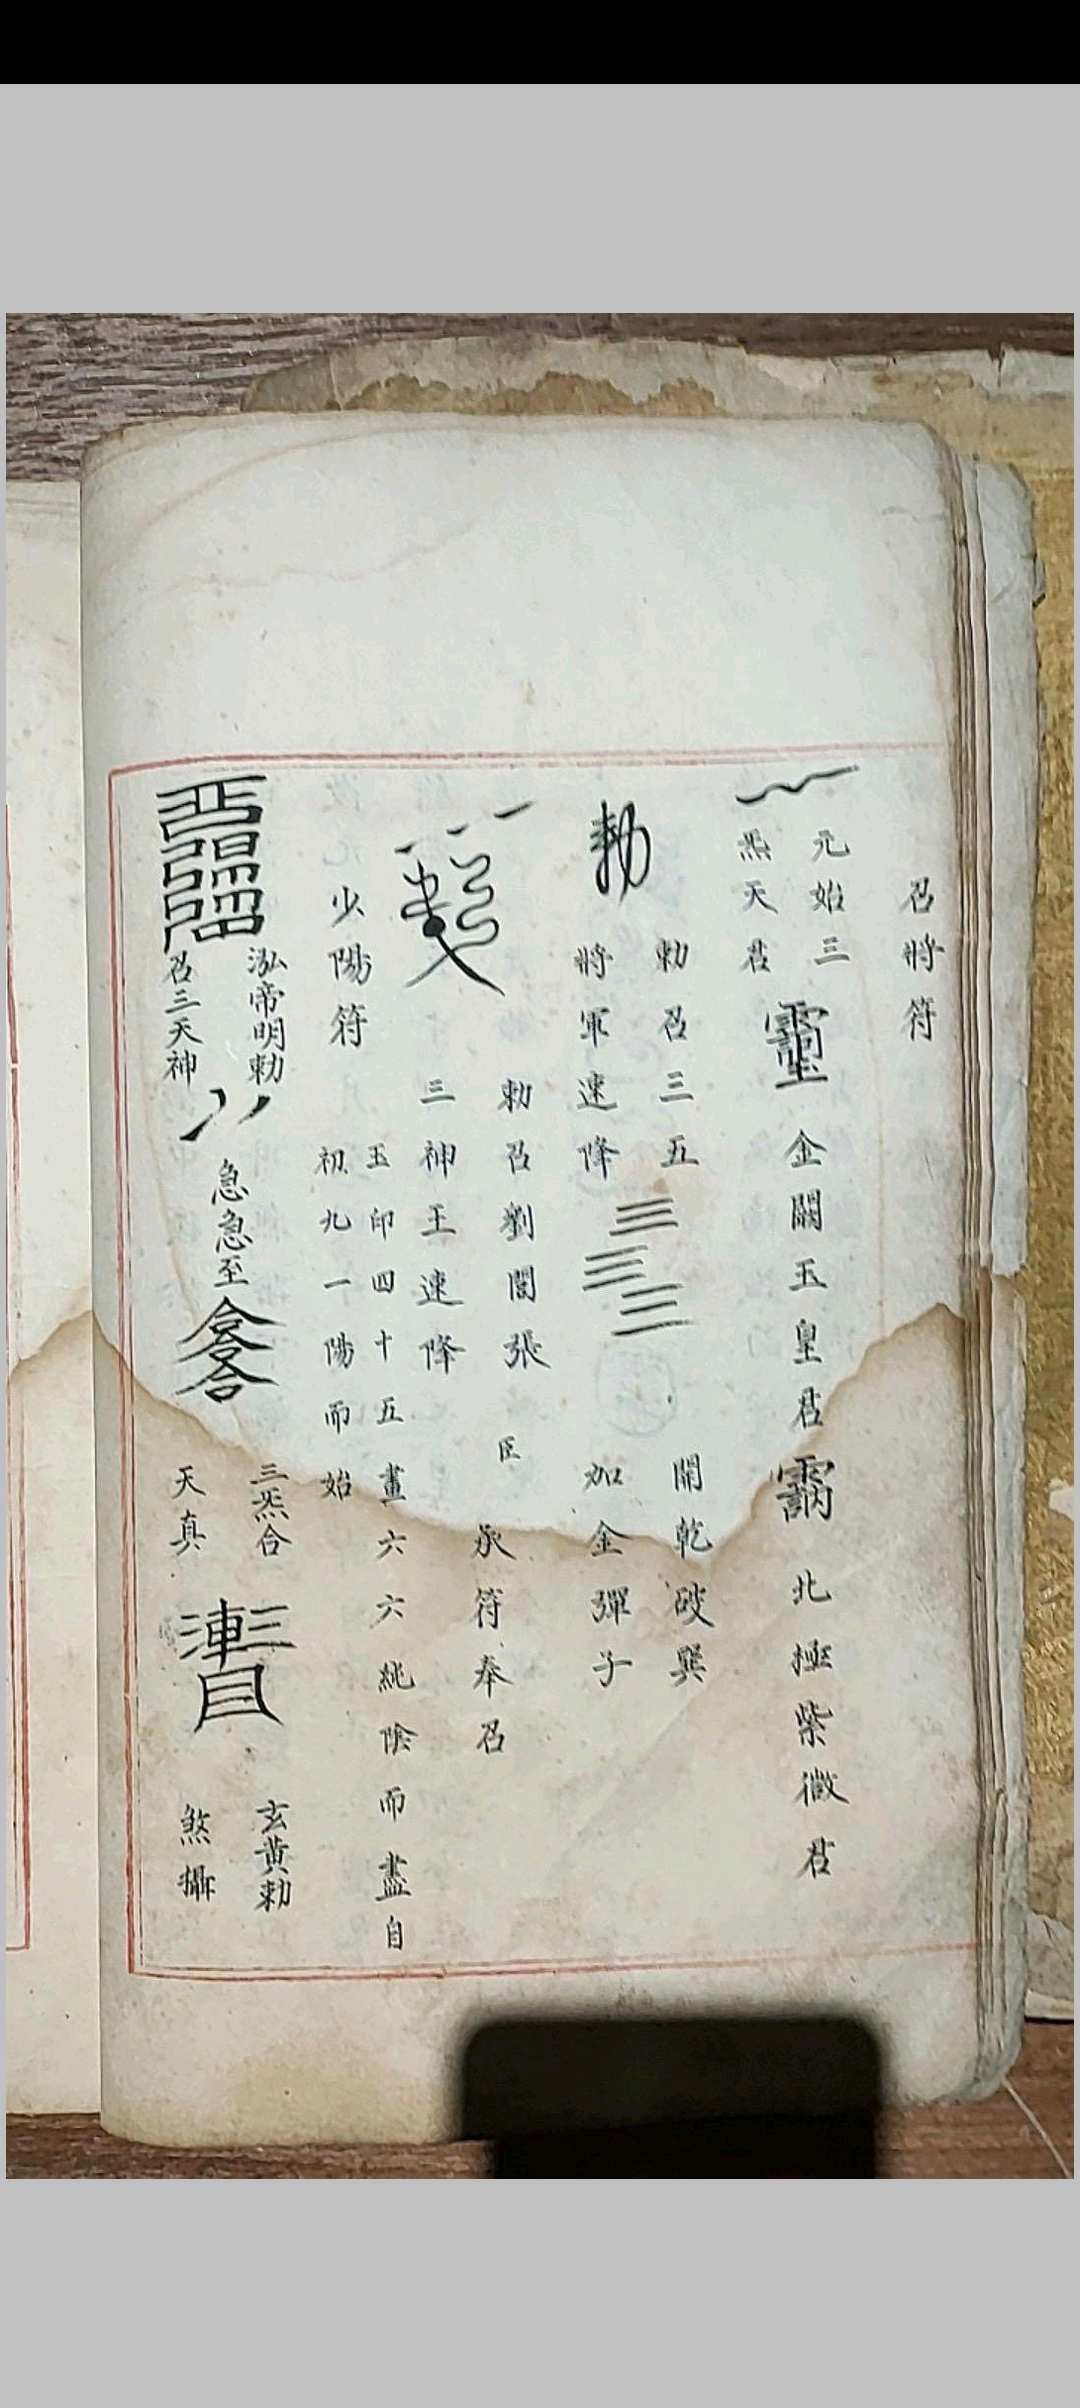 召將符
元始三
炁天君
金闕玉皇君
北極紫微君
勅召三五
將軍速降
勅
開乾破巽
加金彈子
勅召劉閻張
三神王速降
臣
承符奉召
少陽符
玉印四十五畫六六純陰而盡自
初九一陽而始
泓帝明勅
召三天神
急急至
三炁合
天真
玄黃勅
煞攝